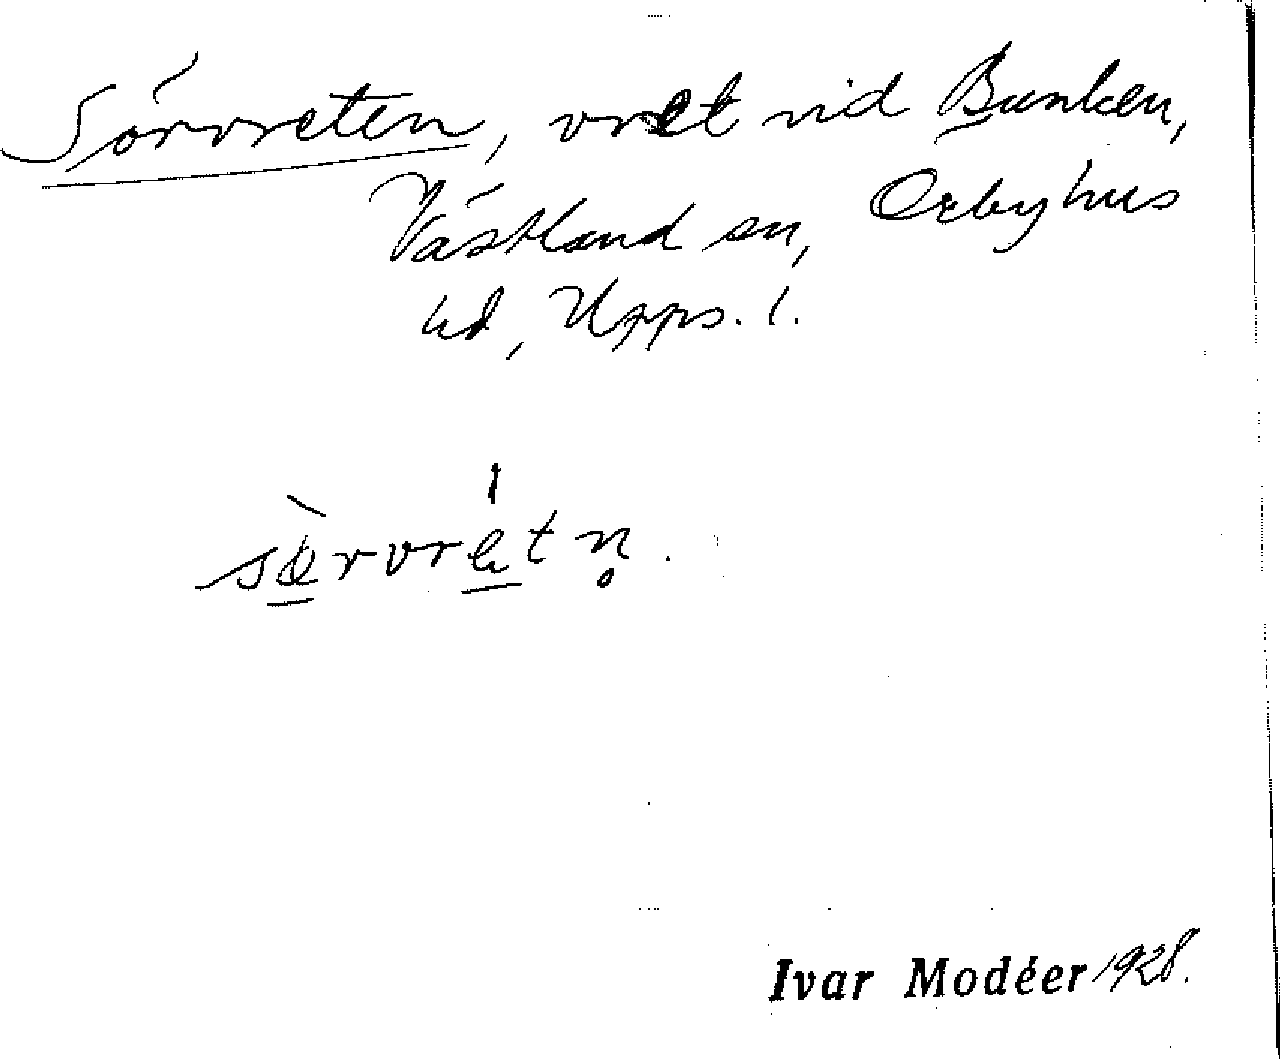 Sörvreten, vret vid Bunken,
Västland sn, Örbyhus
hd, Upps. l.
sørvretn̥.
Ivar Modéer 1928.